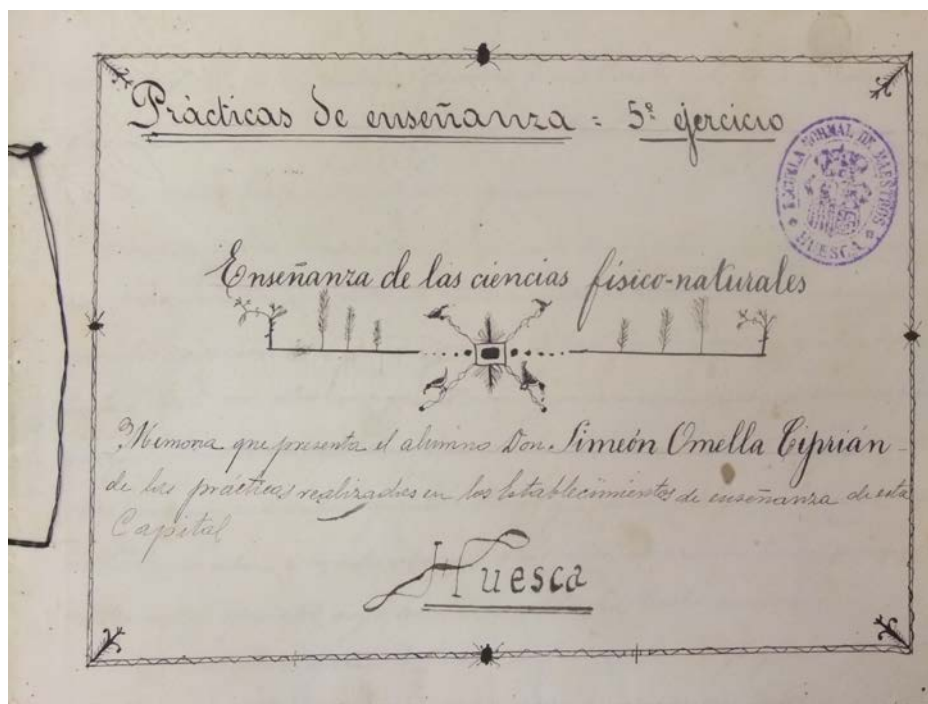 Prácticas de enseñanza = 5º ejercicio
ESCUELA NORMAL DE MAESTROS
HUESCA
Enseñanza de las ciencias físico-naturales
Memoria que presenta el alumno Don Simeón Omella Ciprián
de las prácticas realizadas en los Establecimientos de enseñanza de esta
Capital
Huesca